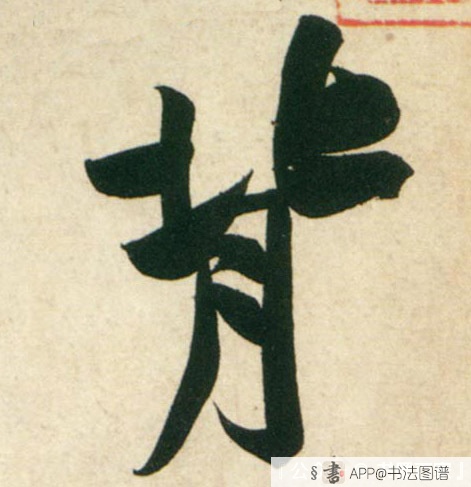 背
§書 APP@书法图谱